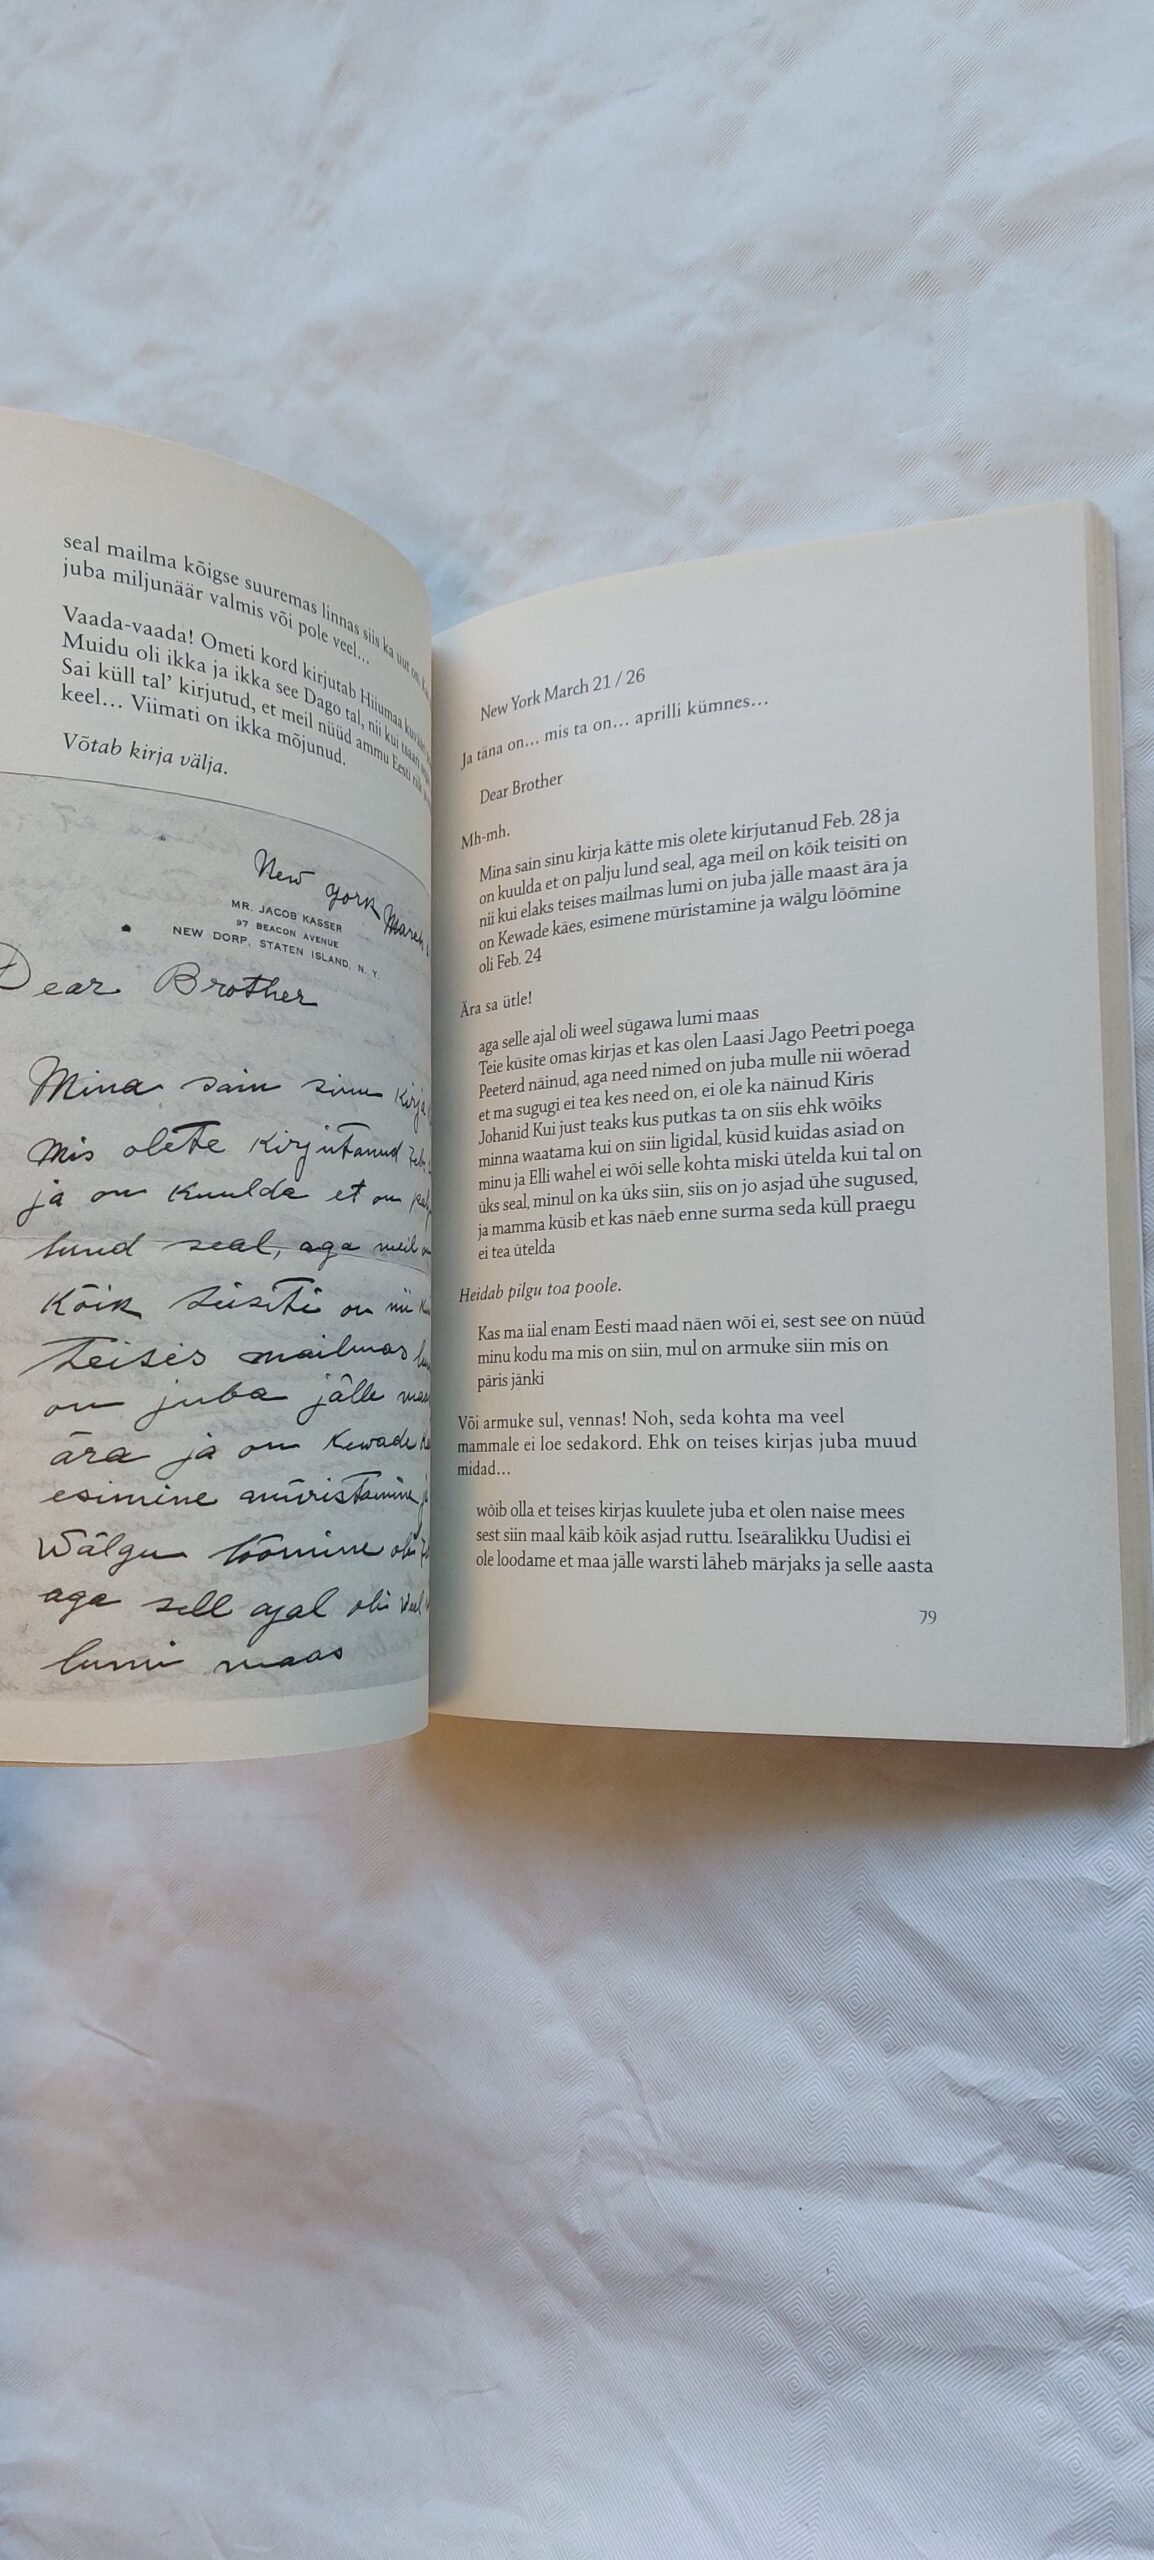 seal mailma kõigse suuremas linnas siis ka uut on.
juba miljunäär valmis või pole veel...
Vaada-vaada! Ometi kord kirjutab Hiiumaa
Muidu oli ikka ja ikka see Dago tal, nii kui
Sai küll tal' kirjutud, et meil nüüd ammu Eesti riik
keel... Viimati on ikka mõjunud.
Võtab kirja välja.
New York March
MR. JACOB KASSER
97 BEACON AVENUE
NEW DORP, STATEN ISLAND, N. Y.
Dear Brother
Mina sain sinu kirja
mis olete kirjutanud
ja on kuulda et on
lund seal, aga meil
kõik teisiti on nii
teises mailmas
on juba jälle
ära ja on kewade
esimine müristamine
wälgu löömine oli
aga sell ajal oli weel
lumi maas
New York March 21 / 26
Ja täna on... mis ta on... aprilli kümnes...
Dear Brother
Mh-mh.
Mina sain sinu kirja kätte mis olete kirjutanud Feb. 28 ja
on kuulda et on palju lund seal, aga meil on kõik teisiti on
nii kui elaks teises mailmas lumi on juba jälle maast ära ja
on Kewade käes, esimene müristamine ja wälgu löömine
oli Feb. 24
Ära sa ütle!
aga selle ajal oli weel sügawa lumi maas
Teie küsite omas kirjas et kas olen Laasi Jago Peetri poega
Peeterd näinud, aga need nimed on juba mulle nii wõerad
et ma sugugi ei tea kes need on, ei ole ka näinud Kiris
Johanid Kui just teaks kus putkas ta on siis ehk wõiks
minna waatama kui on siin ligidal, küsid kuidas asiad on
minu ja Elli wahel ei wõi selle kohta miski ütelda kui tal on
üks seal, minul on ka üks siin, siis on jo asjad ühe sugused,
ja mamma küsib et kas näeb enne surma seda küll praegu
ei tea ütelda
Heidab pilgu toa poole.
Kas ma iial enam Eesti maad näen wõi ei, sest see on nüüd
minu kodu ma mis on siin, mul on armuke siin mis on
päris jänki
Või armuke sul, vennas! Noh, seda kohta ma veel
mammale ei loe sedakord. Ehk on teises kirjas juba muud
midad...
wõib olla et teises kirjas kuulete juba et olen naise mees
sest siin maal käib kõik asjad ruttu. Iseäralikku Uudisi ei
ole loodame et maa jälle warsti läheb märjaks ja selle aasta
79